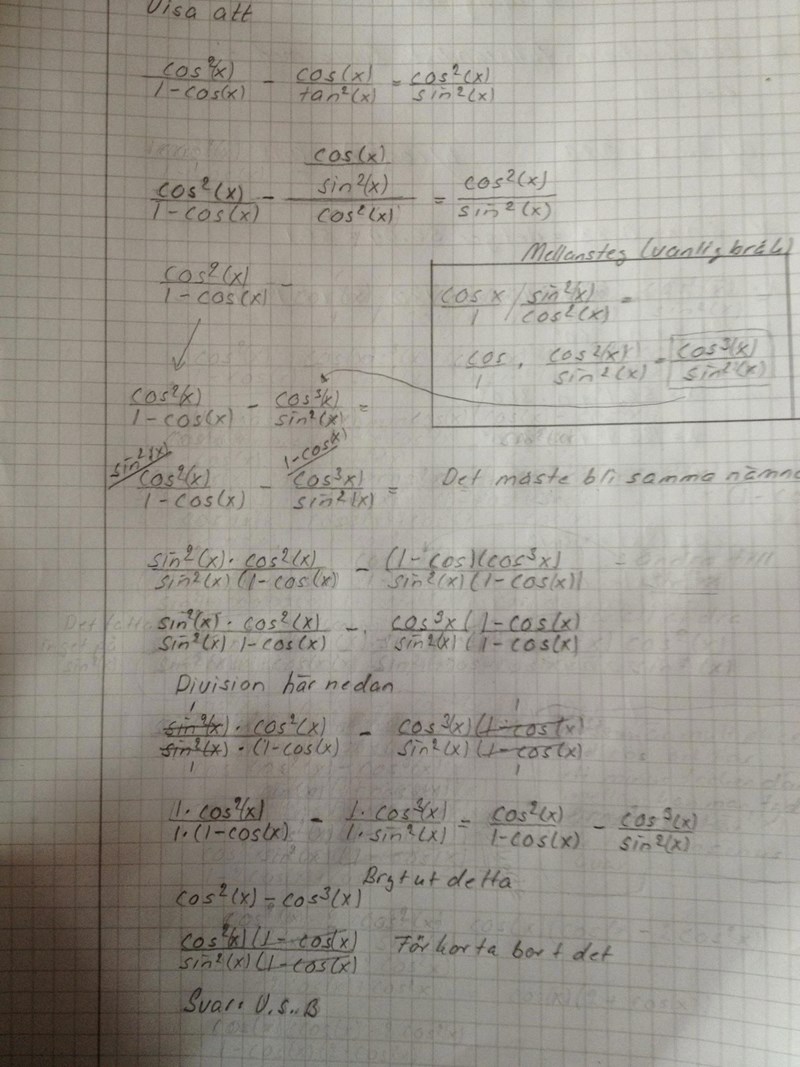 Visa att
cos²(x)/1-cos(x) - cos(x)/tan²(x) = cos²(x)/sin²(x)
cos²(x)/1-cos(x) - cos(x)/sin²(x)/cos²(x) = cos²(x)/sin²(x)
Mellansteg (vanlig bråk)
cos²(x)/1-cos(x) -
cos x/1 / sin²(x)/cos²(x) =
cos/1 . cos²(x)/sin²(x) = cos³(x)/sin²(x)
cos²(x)/1-cos(x) - cos³(x)/sin²(x) =
sin²(x)/ cos²(x)/1-cos(x) - 1-cos(x)/ cos³x)/sin²(x) = Det måste bli samma nämna
sin²(x)·cos²(x)/sin²(x)(1-cos(x) - (1-cos)(cos³x)/sin²(x)(1-cos(x))
sin²(x)·cos²(x)/sin²(x) 1-cos(x) - cos³x(1-cos(x)/sin²(x)(1-cos(x)
Division här nedan
1 1
sin²(x)·cos²(x)/sin²(x)·(1-cos(x) - cos³(x)(1-cos(x)/sin²(x)(1-cos(x)
1 1
1·cos²(x)/1·(1-cos(x) - 1·cos³(x)/1·sin²(x) = cos²(x)/1-cos(x) - cos³(x)/sin²(x)
Bryt ut detta
cos²(x)-cos³(x)
cos²(x)(1-cos(x)/sin²(x)(1-cos(x) Förkorta bort det
Svar: V.S.B